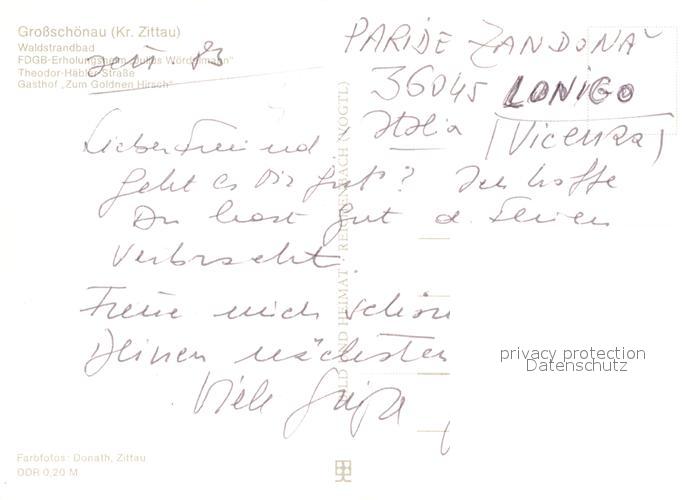 Großschönau (Kr. Zittau)
Waldstrandbad
FDGB-Erholungsheim „Julius Wördelmann"
Theodor-Häbler-Straße
Gasthof „Zum Goldnen Hirsch"
83
PARIDE ZANDONA'
36045 LONIGO
Italia (Vicenza)
Lieber Freund,
geht es Dir gut? Ich hoffe
Du hast gut d. Ferien
verbracht.
Freue mich schon
Deinen nächsten
Viele
BILD UND HEIMAT · REICHENBACH (VOGTL)
privacy protection
Datenschutz
Farbfotos: Donath, Zittau
DDR 0,20 M